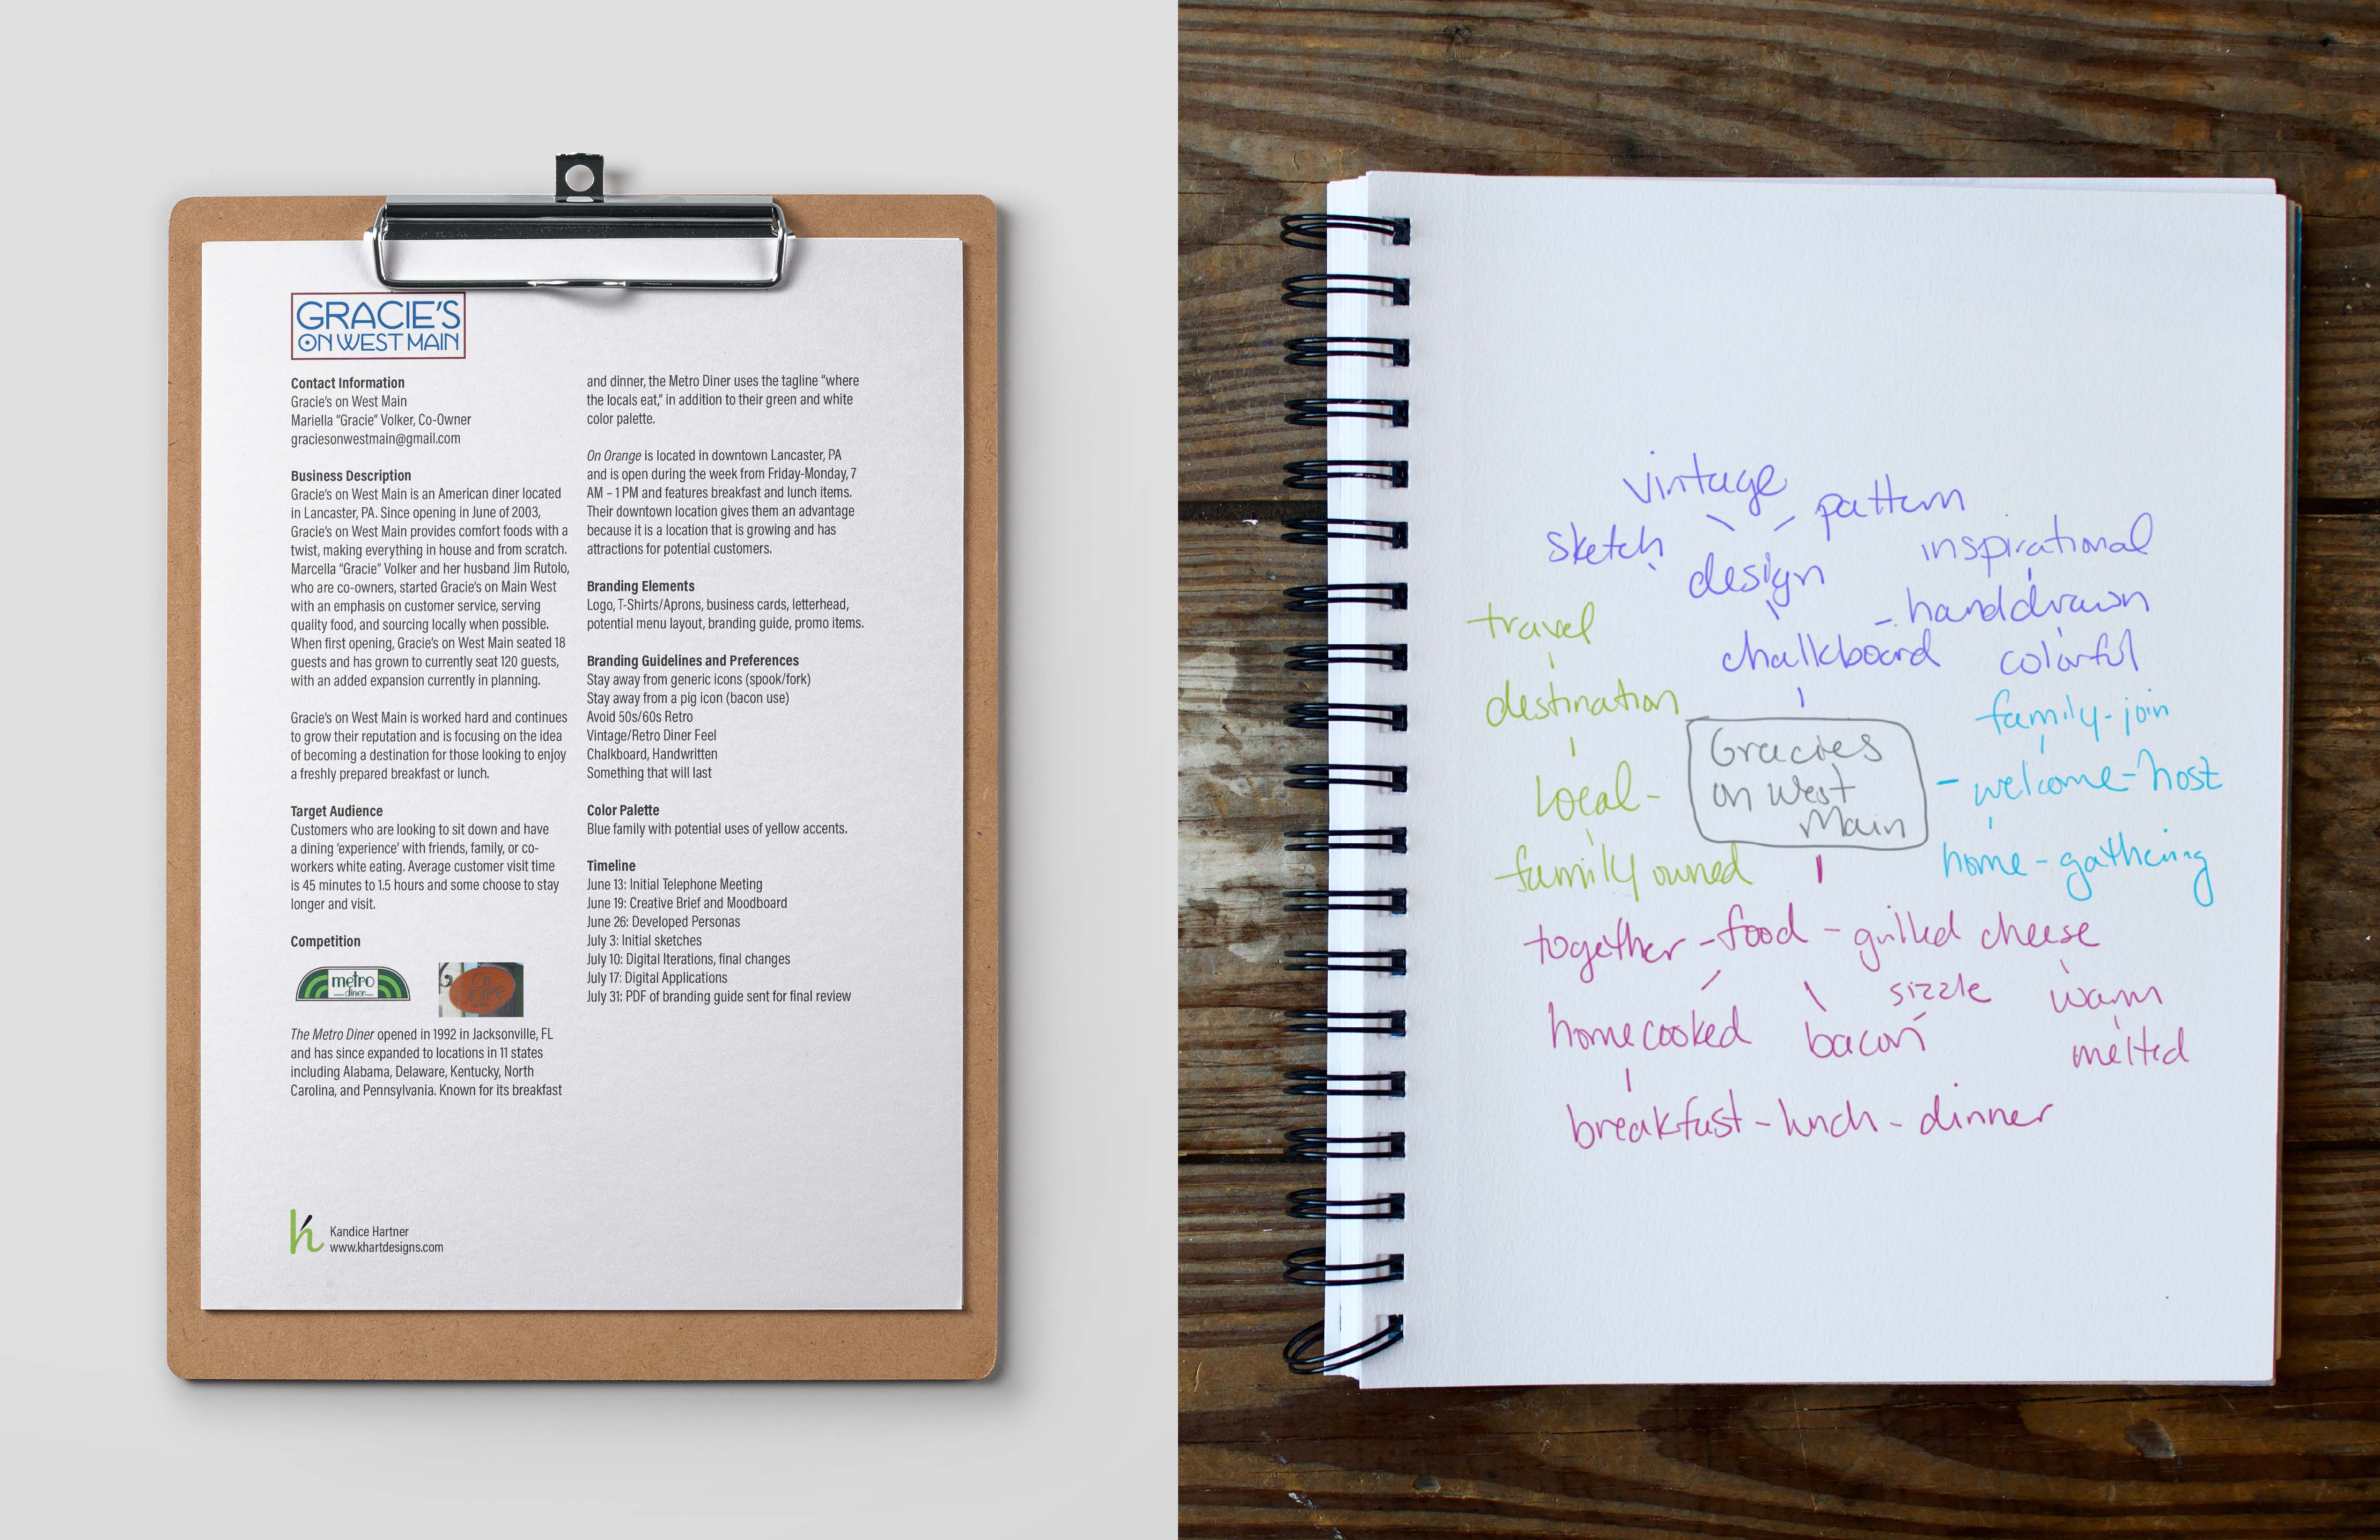 GRACIE'S
ON WEST MAIN
Contact Information
Gracie's on West Main
Mariella "Gracie" Volker, Co-Owner
graciesonwestmain@gmail.com
Business Description
Gracie's on West Main is an American diner located
in Lancaster, PA. Since opening in June of 2003,
Gracie's on West Main provides comfort foods with a
twist, making everything in house and from scratch.
Marcella "Gracie" Volker and her husband Jim Rutolo,
who are co-owners, started Gracie's on Main West
with an emphasis on customer service, serving
quality food, and sourcing locally when possible.
When first opening, Gracie's on West Main seated 18
guests and has grown to currently seat 120 guests,
with an added expansion currently in planning.
Gracie's on West Main is worked hard and continues
to grow their reputation and is focusing on the idea
of becoming a destination for those looking to enjoy
a freshly prepared breakfast or lunch.
Target Audience
Customers who are looking to sit down and have
a dining 'experience' with friends, family, or co-
workers white eating. Average customer visit time
is 45 minutes to 1.5 hours and some choose to stay
longer and visit.
Competition
metro
diner
The Metro Diner opened in 1992 in Jacksonville, FL
and has since expanded to locations in 11 states
including Alabama, Delaware, Kentucky, North
Carolina, and Pennsylvania. Known for its breakfast
and dinner, the Metro Diner uses the tagline "where
the locals eat," in addition to their green and white
color palette.
On Orange is located in downtown Lancaster, PA
and is open during the week from Friday-Monday, 7
AM – 1 PM and features breakfast and lunch items.
Their downtown location gives them an advantage
because it is a location that is growing and has
attractions for potential customers.
Branding Elements
Logo, T-Shirts/Aprons, business cards, letterhead,
potential menu layout, branding guide, promo items.
Branding Guidelines and Preferences
Stay away from generic icons (spook/fork)
Stay away from a pig icon (bacon use)
Avoid 50s/60s Retro
Vintage/Retro Diner Feel
Chalkboard, Handwritten
Something that will last
Color Palette
Blue family with potential uses of yellow accents.
Timeline
June 13: Initial Telephone Meeting
June 19: Creative Brief and Moodboard
June 26: Developed Personas
July 3: Initial sketches
July 10: Digital Iterations, final changes
July 17: Digital Applications
July 31: PDF of branding guide sent for final review
h
Kandice Hartner
www.khartdesigns.com
vintage
pattern
sketch
design
inspirational
handdrawn
chalkboard
colorful
travel
destination
local -
family owned
Gracies
on West
Main
family - join
- welcome - host
home - gathering
together - food - grilled cheese
homecooked
bacon
sizzle
warm
melted
breakfast - lunch - dinner